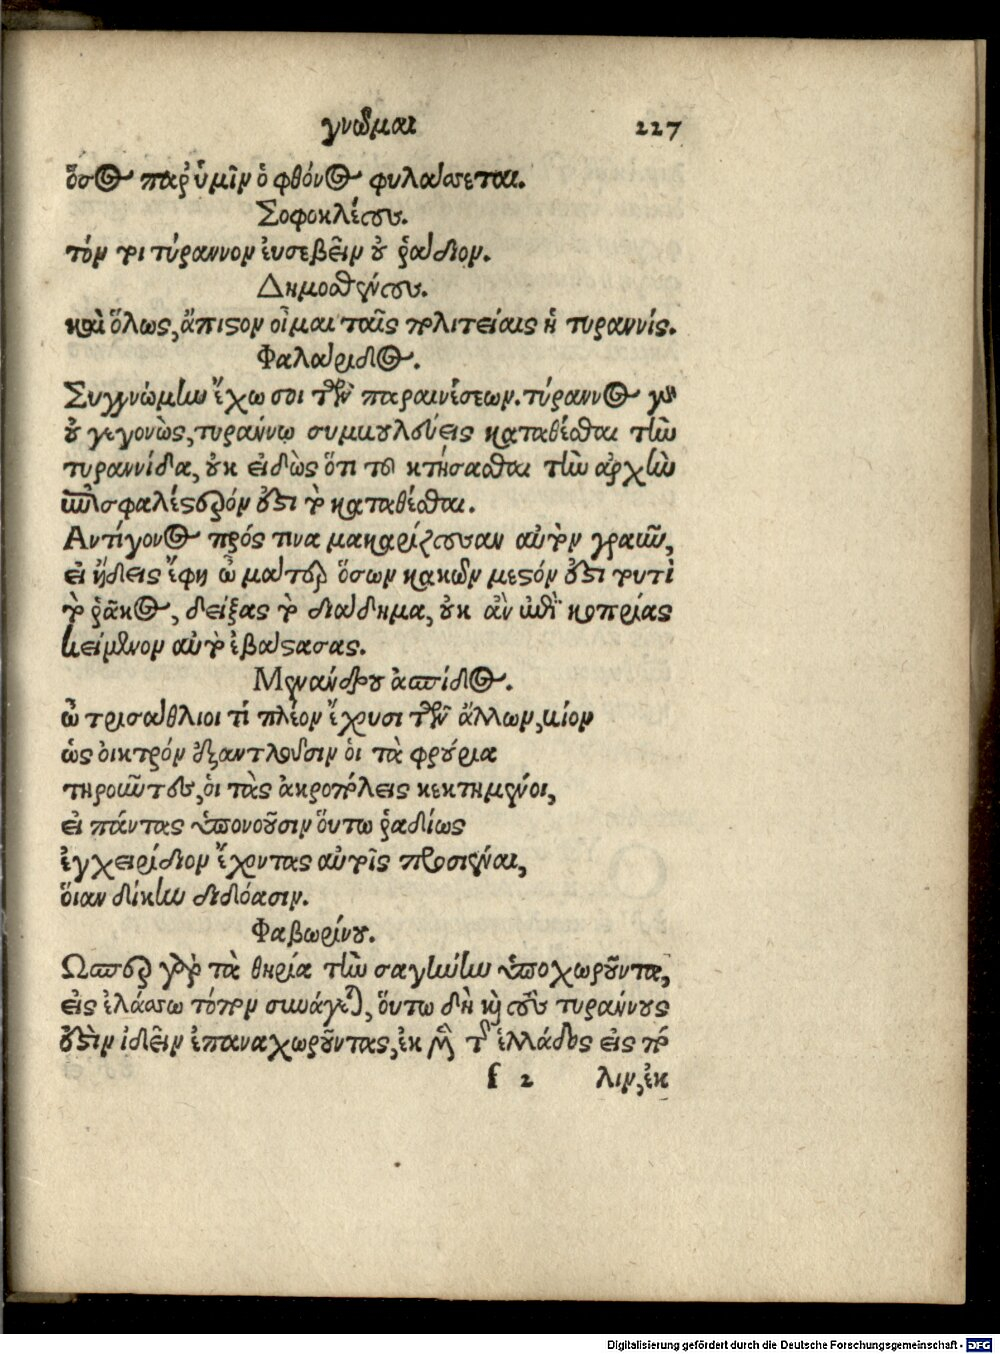 γνῶμαι 227
ὅσος παρ᾽ ὑμῖν ὁ φθόνος φυλάσσεται.
Σοφοκλέους.
τόν τοι τύραννον ἐυσεβεῖν οὐ ῥάδιον.
Δημοσθένους.
καὶ ὅλως, ἄπιστον οἶμαι ταῖς πολιτείαις ἡ τυραννίς.
Φαλάριδος.
Συγγνώμην ἔχω σοι τῶν παραινέσεων. τύραννος γὰρ
οὐ γεγονὼς, τυράννῳ συμβουλεύεις καταθέσθαι τὴν
τυραννίδα, οὐκ εἰδὼς ὅτι τοῦ κτήσασθαι τὴν ἀρχὴν
ἐπισφαλέστερόν ἐστι τὸ καταθέσθαι.
Αντίγονος πρός τινα μακαρίζουσαν αὐτὸν γραῦν,
εἰ ᾔδεις ἔφη ὦ μᾶτερ ὅσων κακῶν μεστόν ἐστι τουτὶ
τὸ ῥᾶκος, δείξας τὸ διάδημα, οὐκ ἂν ἐπὶ κοπρίας
κείμενον αὐτὸ ἐβάστασας.
Μενάνδρου ἀσπίδος.
ὦ τρισάθλιοι τί πλέον ἔχουσι τῶν ἄλλων, βίον
ὡς οἰκτρόν ἐξαντλοῦσιν ὁι τὰ φρούρια
τηροῦντες, ὁι τὰς ἀκροπόλεις κεκτημένοι,
εἰ πάντας ὑπονοοῦσιν ὅυτω ῥαδίως
ἐγχειρίδιον ἔχοντας αὐτοῖς προσιέναι,
ὅιαν δίκην διδόασιν.
Φαβωρίνου.
Ωσπερ γὰρ τὰ θηρία τὴν σαγήνην ὑποχωροῦντα,
εἰς ἐλάσσω τόπον συνάγει, ὅυτω δὴ καὶ τοὺς τυράννους
ἐστὶν ἰδεῖν ἐπαναχωροῦντας, ἐκ μὲν τῆς ἑλλάδος εἰς πό
f 2 λιν, ἐκ
Digitalisierung gefördert durch die Deutsche Forschungsgemeinschaft - DFG